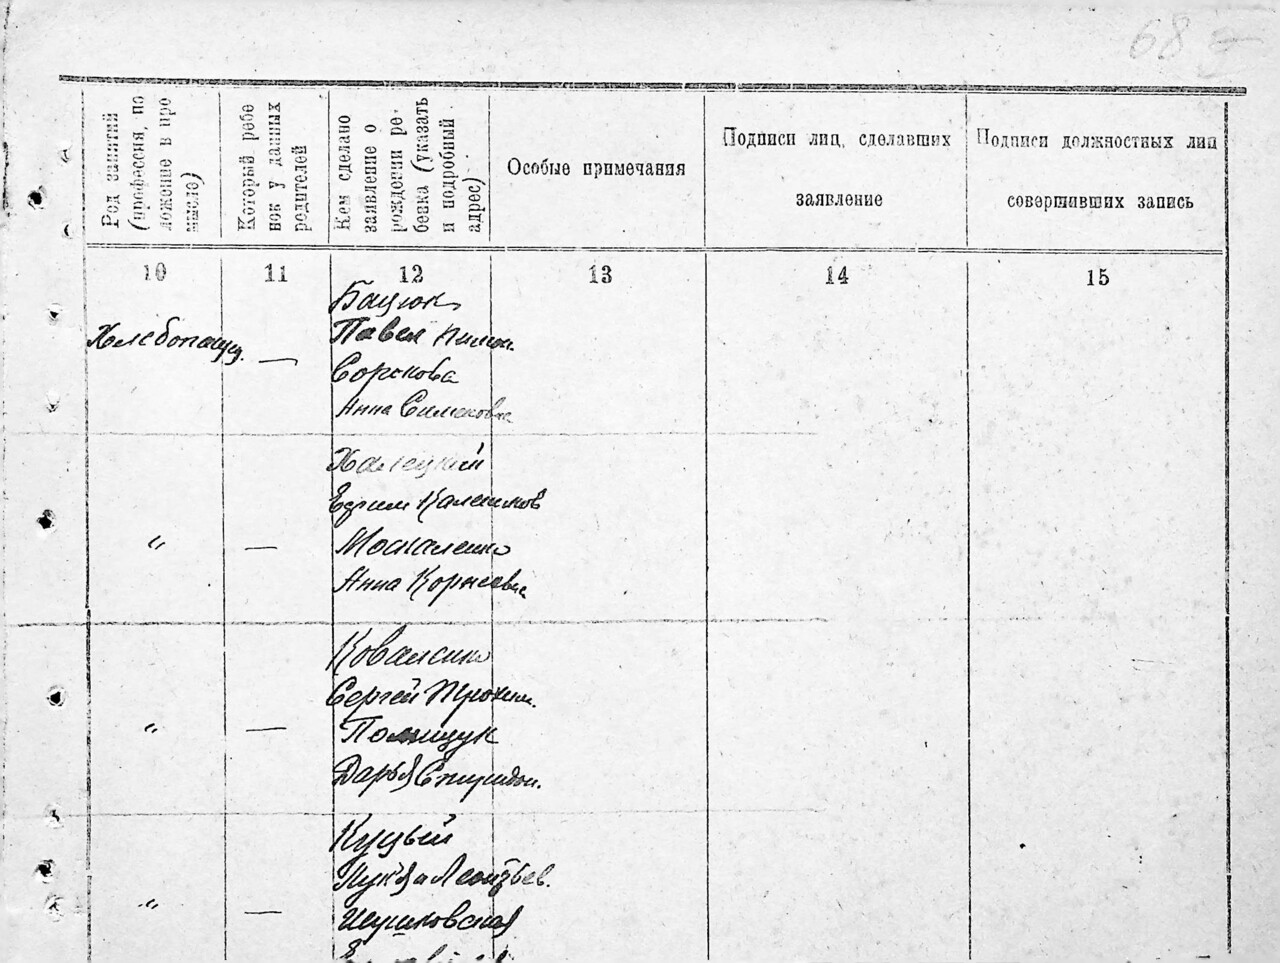 68
Род занятий
(профессия, по
ложение в про
мысле)
Который ребе
нок у данных
родителей
Кем сделано
заявление о
рождении ре-
бенка (указать
и подробный
адрес)
Особые примечания
Подписи лиц, сделавших
заявление
Подписи должностных лиц
совершивших запись
10
11
12
13
14
15
Бацюк
Хлебопашец. —
Павел
Сорокова
Анна Семеновна
Халецкий
Ефрим
" — Москаленко
Анна Корнеевна
Ковальские
Сергей Трохим.
" — Полищук
Дарья Спиридон.
Куцый
Лукья Леонтьев.
" —